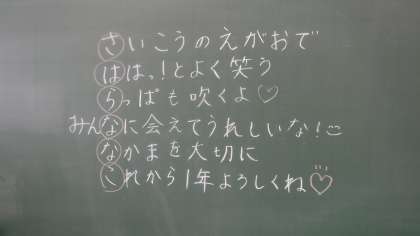 さいこうのえがおで
ははっ!とよく笑う
らっぱも吹くよ♡
みんなに会えてうれしいな!☺
なかまを大切に
これから1年よろしくね♡